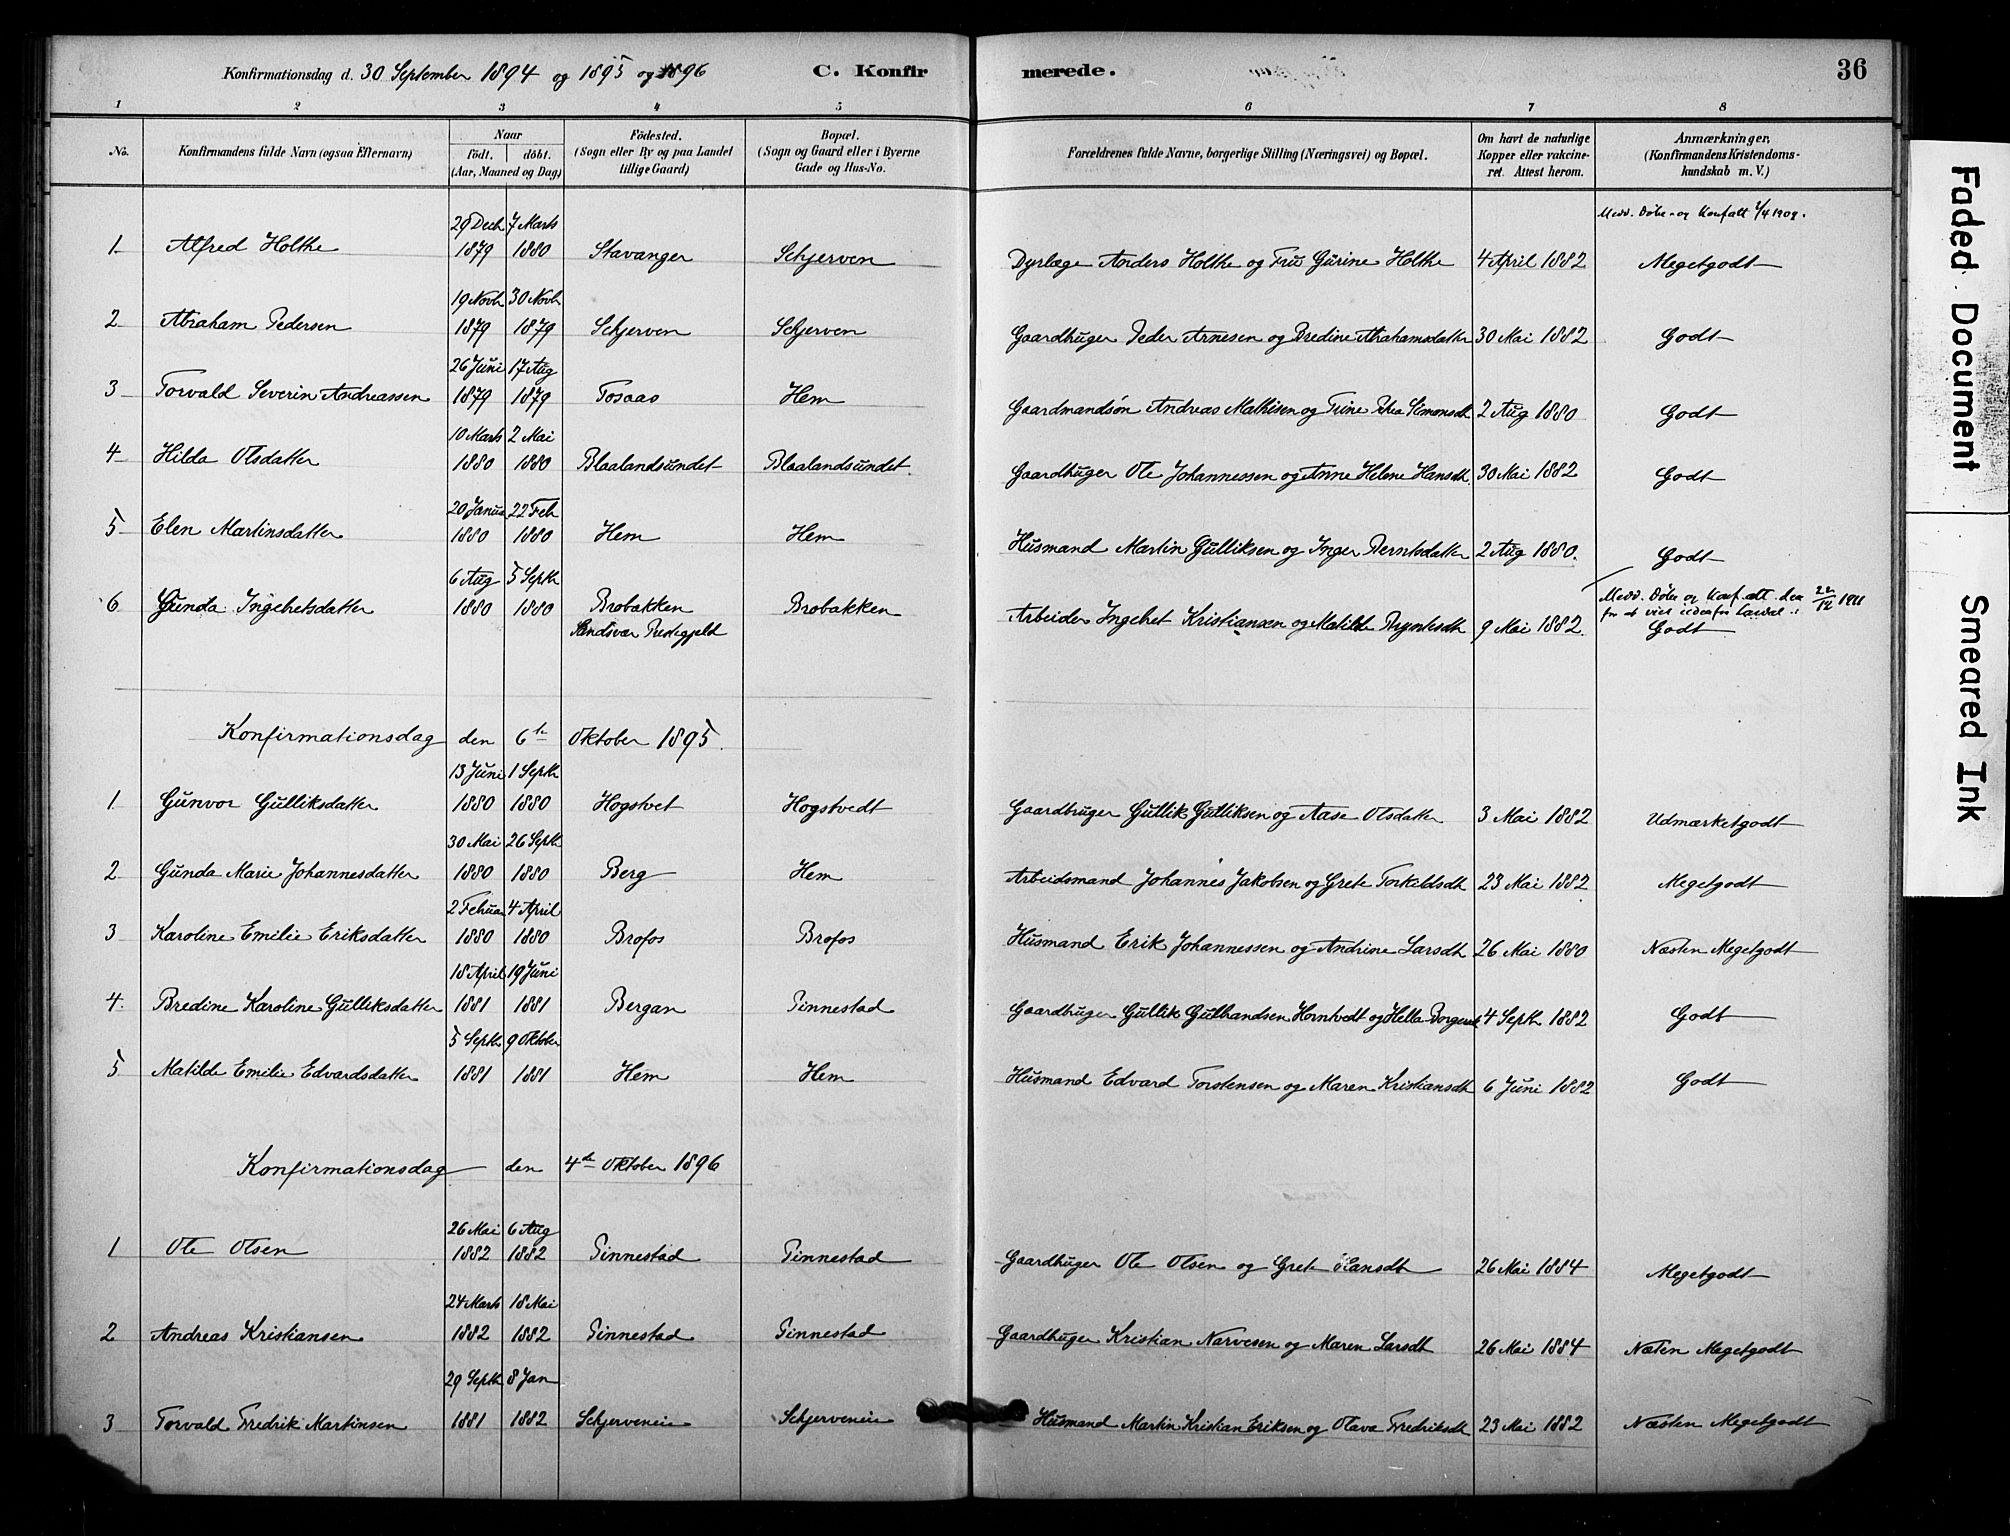 Konfirmationsdag d. 30 September 1894 og 1895 og 1896 C. Konfirmerede. 36
1 2 3 4 5 6 7 8
No.
Konfirmandens fulde Navn (ogsaa Efternavn)
Naar
födt. döbt.
(Aar, Maaned og Dag)
Födested.
(Sogn eller By og paa Landet
tillige Gaard)
Bopæl.
(Sogn og Gaard eller i Byerne
Gade og Hus-No.
Forældrenes fulde Navne, borgerlige Stilling (Næringsvei) og Bopæl.
Om havt de naturlige
Kopper eller vakcine-
ret. Attest herom.
Anmærkninger,
(Konfirmandens Kristendoms-
kundskab m. V.)
29 Decb 7 Marts Medd. Døbe- og Konf.att 1/4 1909.
1. Alfred Holthe 1879 1880 Stavanger Schjerven Dyrlæge Anders Holthe og Fru Gurine Holthe 4 April 1882 Megetgodt
19 Novb 30 Novb
2 Abraham Pedersen 1879 1879 Schjerven Schjerven Gaardbruger Peder Arnesen og Bredine Abrahamsdatter 30 Mai 1882 Godt
26 Juni 17 Aug
3 Torvald Severin Andreassen 1879 1879 Fosaas Hem Gaardmandsøn Andreas Mathisen og Trine Petrea Simonsdt 2 Aug 1880 Godt
10 Marts 2 Mai
4 Hilda Olsdatter 1880 1880 Blaalandsundet Blaalandsundet. Gaardbuger Ole Johannessen og Anne Helene Hansdt. 30 Mai 1882 Godt
20 Janua 22 Feb
5 Elen Martinsdatter 1880 1880 Hem Hem Husmand Martin Gulliksen og Inger Berntsdatter 2 Aug 1880. Godt
6 Aug 5 Septb Medd. Døbe og Konf.att. den 22/12 1911
6 Gunda Ingebretsdatter 1880 1880 Brobakken Brobakken Arbeider Ingebret Kristiansen og Matilde Bryntesdt 9 Mai 1882. Godt
Sandsvær Prestegjeld
Konfirmationsdag den 6te Oktober 1895.
13 Juni 1 Septb
1. Gunvor Gulliksdatter 1880 1880 Hogstvet Hogstvedt Gaardbruger Gullik Gulliksen og Aase Olsdatter 3 Mai 1882 Udmærketgodt
30 Mai 26 Septb
2 Gunda Marie Johannesdatter 1880 1880 Berg Hem Arbeidsmand Johannes Jakobsen og Grete Torkildsdt 23 Mai 1882 Megetgodt
2 Februa 4 April
3 Karoline Emilie Eriksdatter 1880 1880 Brofos Brofos Husmand Erik Johannessen og Andrine Larsdt 26 Mai 1880 Næsten Megetgodt
18 April 19 Juni
4. Bredine Karoline Gulliksdatter 1881 1881 Bergan Pinnestad Gaardbruger Gullik Gulbrandsen Horntvedt og Hella 4 Septb 1882 Godt
5 Septb 9 Oktober
5 Matilde Emilie Edvardsdatter 1881 1881 Hem Hem Husmand Edvard Torstensen og Maren Kristiansdt 6 Juni 1882 Godt
Konfirmationsdag den 4de Oktober 1896
26 Mai 6 Aug
1 Ole Olsen 1882 1882 Pinnestad Pinnestad Gaardbruger Ole Olsen og Grete Hansdt 26 Mai 1884 Megetgodt
24 Marts 18 Mai
2 Andreas Kristiansen 1882 1882 Pinnestad Pinnestad Gaardbruger Kristian Narvesen og Maren Larsdt 26 Mai 1884 Næten Megetgodt
29 Septb 8 Jan
3 Torvald Fredrik Martinsen 1881 1882 Schjerveneie Schjerveneie Husmand Martin Kristian Eriksen og Olava Fredriksdt 23 Mai 1882 Næsten Megetgodt
Faded Document
Smeared Ink